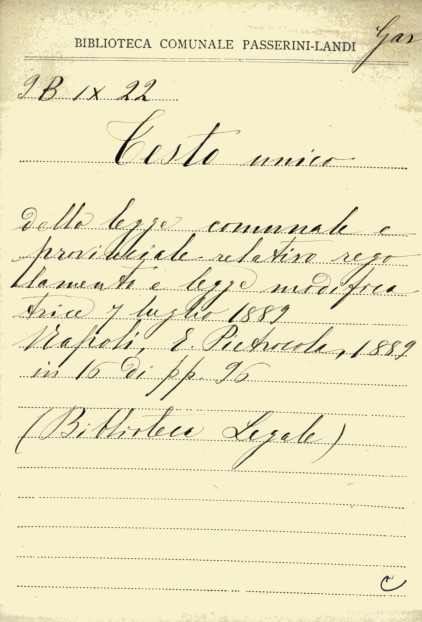 Gar
BIBLIOTECA COMUNALE PASSERINI-LANDI
9 B IX 22
Testo unico
della legge comunale e
provinciale relativo rego
lamenti e legge modifica
trice 7 luglio 1889
Napoli, E. Pietrocola, 1889
in 16 di pp. 96
(Biblioteca Legale)
C